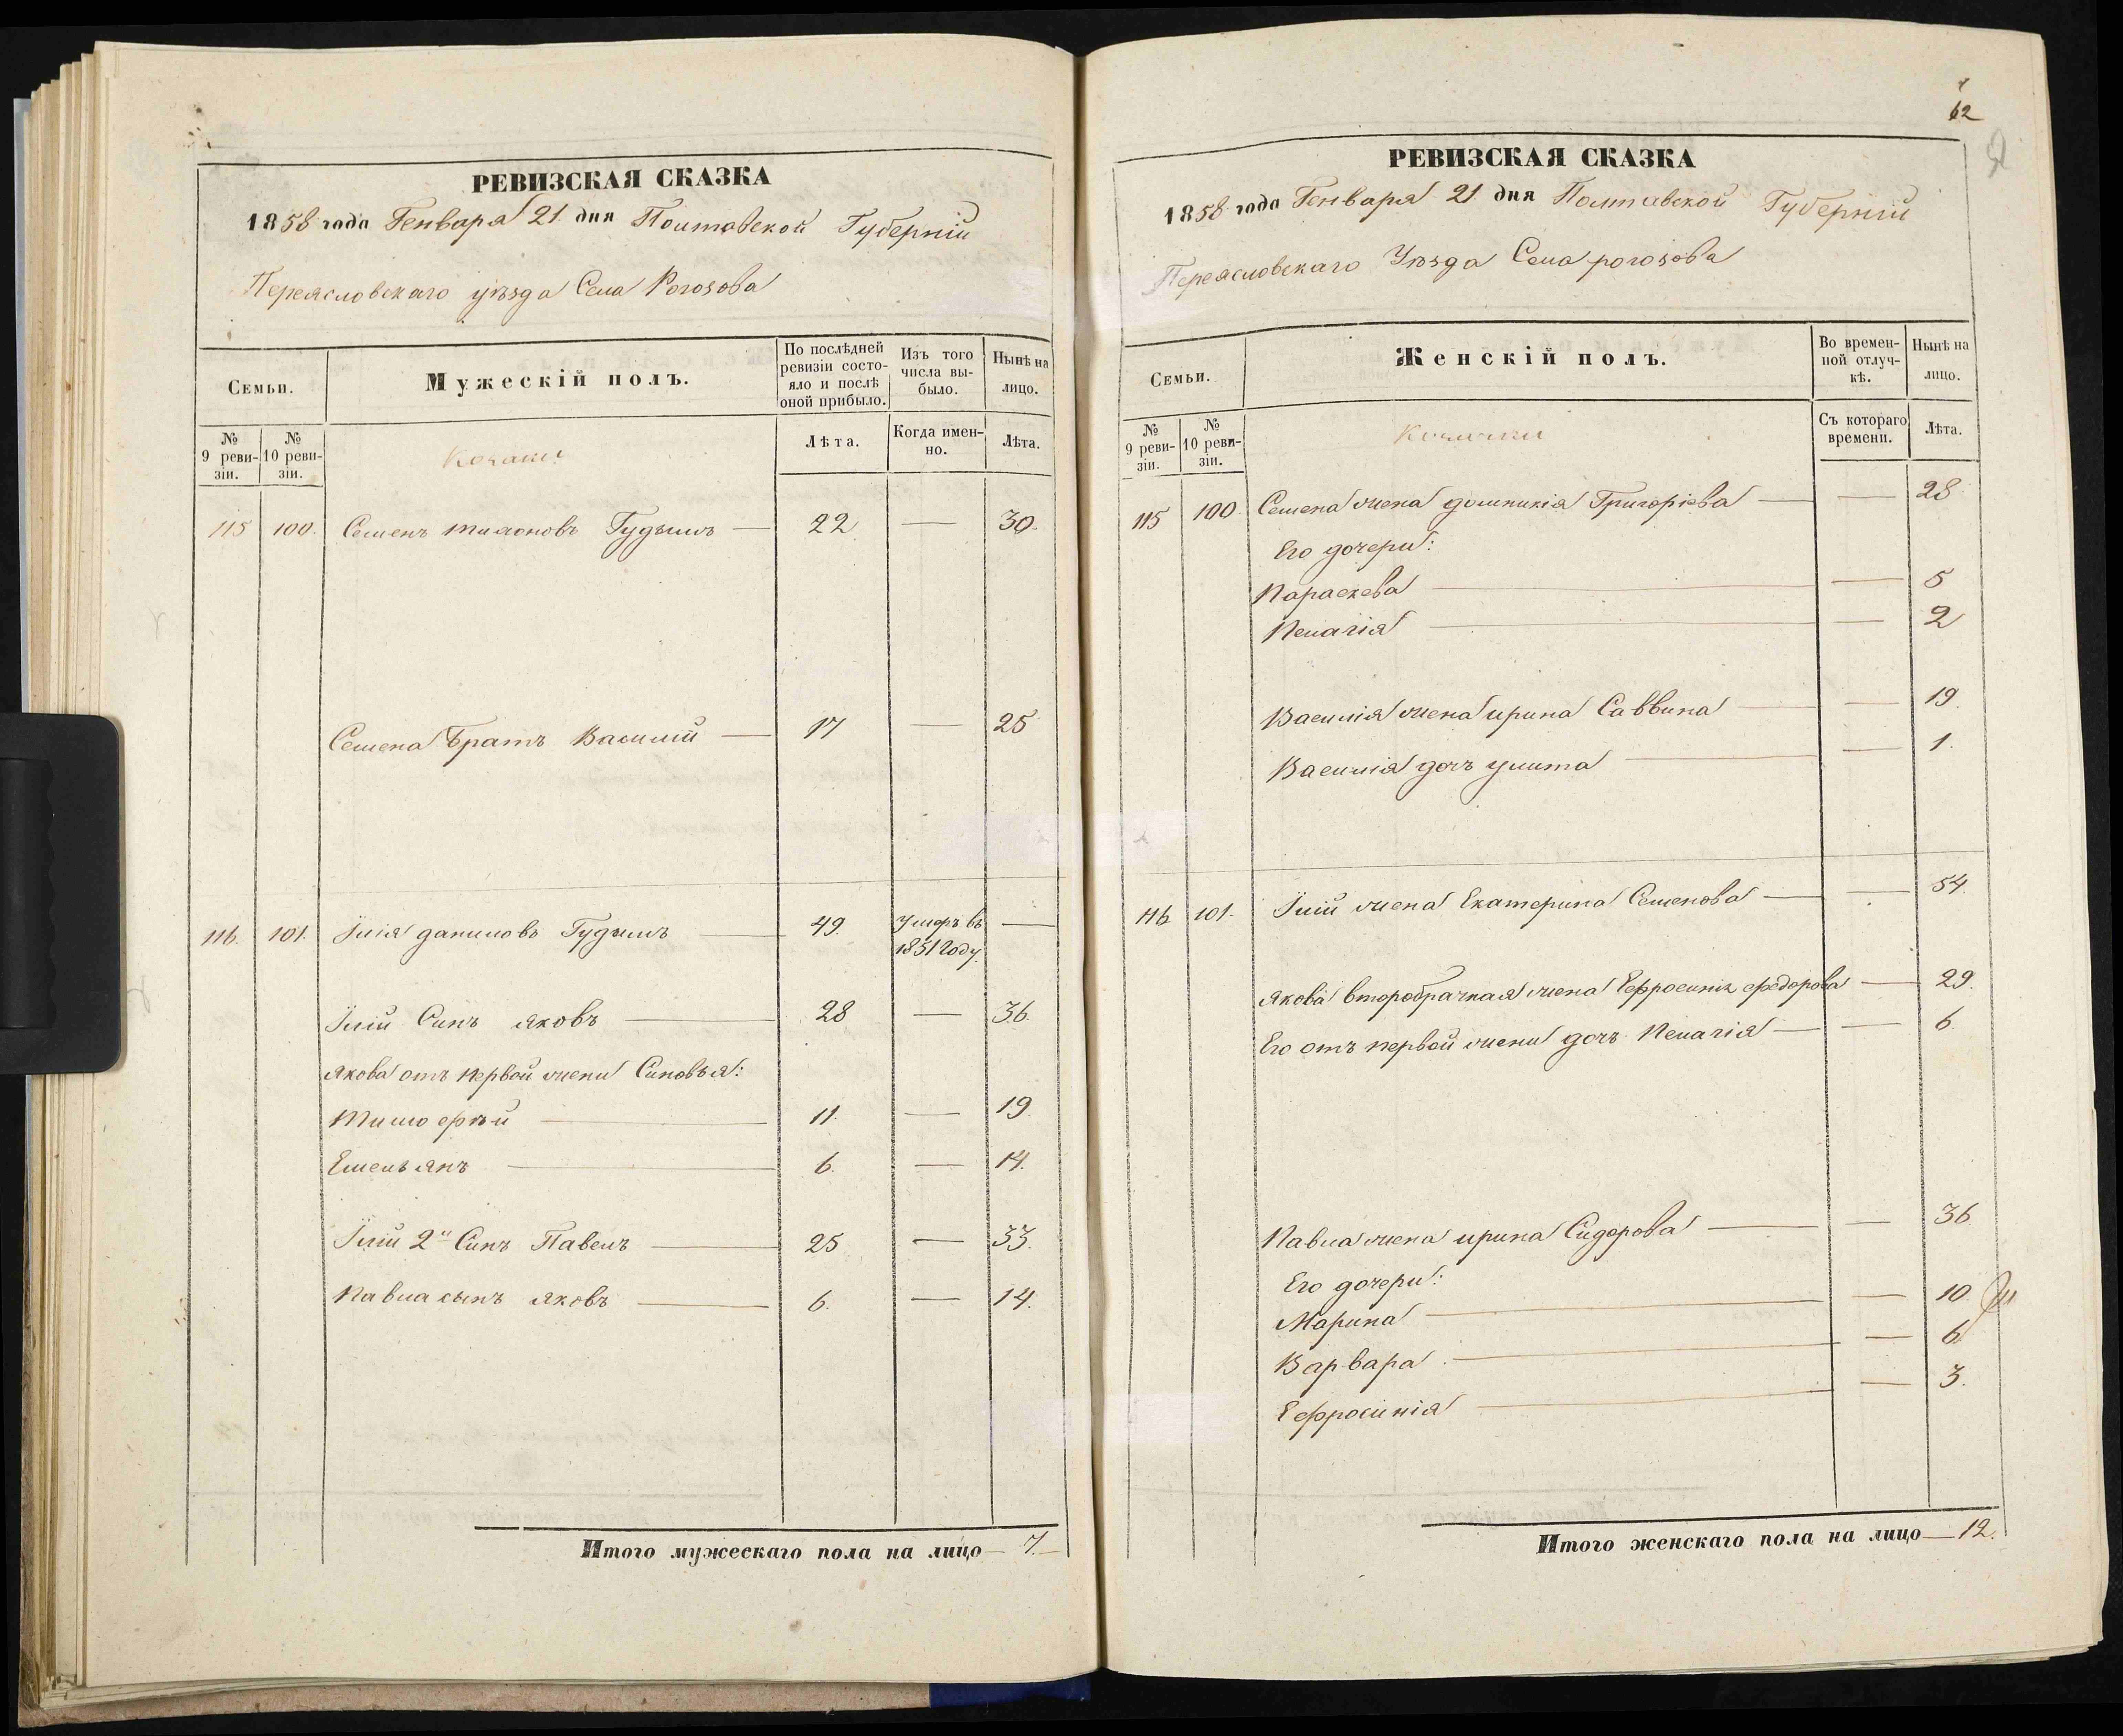 РЕВИЗСКАЯ СКАЗКА
1858 года Генваря 21 дня Полтавской Губерніи
Переясловскаго уѣзда Села Рогозова
Семьи.
Мужескій полъ.
По послѣдней ревизіи состояло и послѣ оной прибыло.
Изъ того числа выбыло.
Нынѣ на лицо.
№ 9 ревизіи.
№ 10 ревизіи.
Козаки
Лѣта.
Когда именно.
Лѣта.
115 100. Семенъ Тимоновъ Гудымъ — 22. — 30.
Семена Братъ Василій — 17 — 25
116. 101. Илія даниловъ Гудымъ — 49. Умеръ въ —
1851 Году.
Иліи Синъ яковъ — 28 — 36.
якова отъ первой жени Синовья:
Тимофѣй — 11. — 19.
Емельянъ — 6. — 14.
Иліи 2й Синъ Павелъ — 25 — 33.
Павла сынъ яковъ — 6. — 14.
Итого мужескаго пола на лицо — 7. —
62
РЕВИЗСКАЯ СКАЗКА
1858 года Генваря 21 дня Полтавской Губерніи
Переясловскаго Уѣзда Села рогозова
Семьи.
Женскій полъ.
Во временной отлучкѣ.
Нынѣ на лицо.
№ 9 ревизіи.
№ 10 ревизіи.
Козачки
Съ котораго времени.
Лѣта.
115 100. Семена жена домникія Григоріева — — 28.
Его дочери:
Параскева — — 5
Пелагія — — 2
Василія жена ирина Саввина — — 19.
Василія дочъ улита — — 1.
116 101. Иліи жена Екатерина Семенова — — 54.
якова второбрачная жена Ефросинія федорова — 29.
Его отъ первой жени дочъ Пелагія — — 6
Павла жена ирина Сидорова — — 36.
Его дочери:
Марина — — 10.
Варвара — — 6.
Ефросинія — — 3.
Итого женскаго пола на лицо — 12.